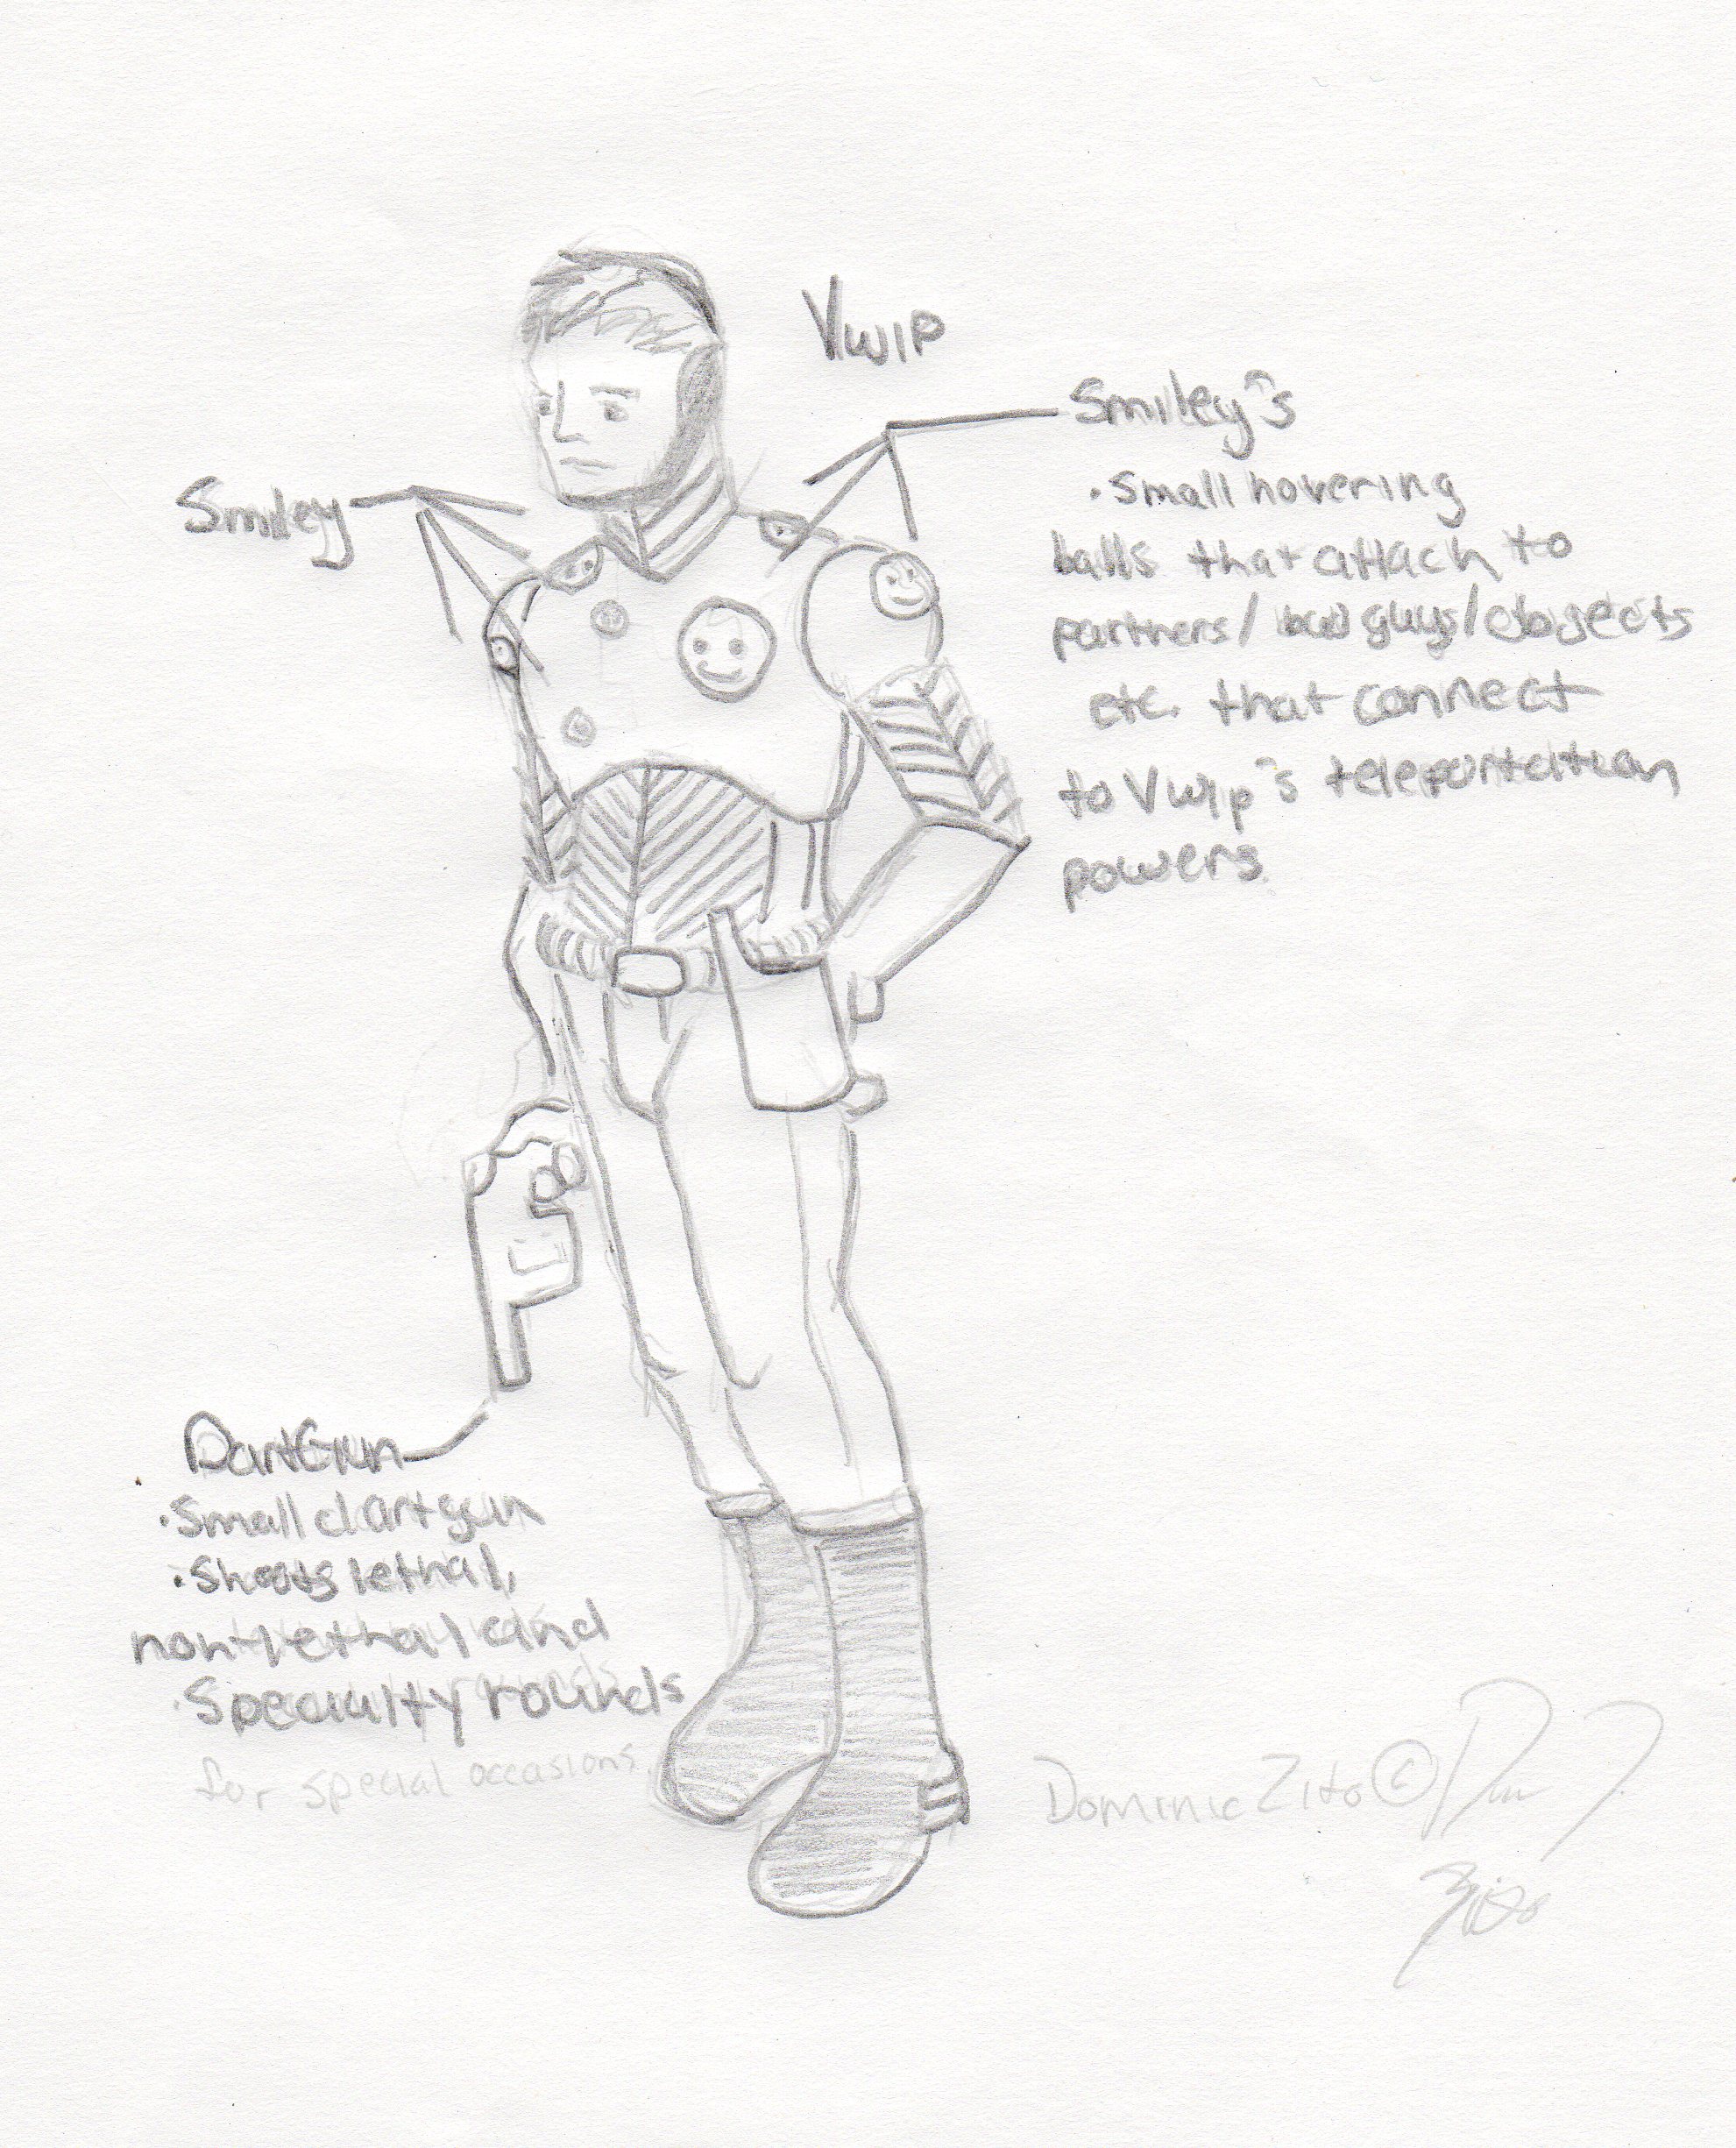 Vwip
Smiley's
• Small hovering
balls that attach to
partners/ bad guys/objects
etc. that connect
to Vwip's teleportation
powers.
Smiley
DartGun
• Small dart gun
• Shoots lethal,
non-lethal and
• Specialty rounds
for special occasions.
Dominic Zito ©
Zito